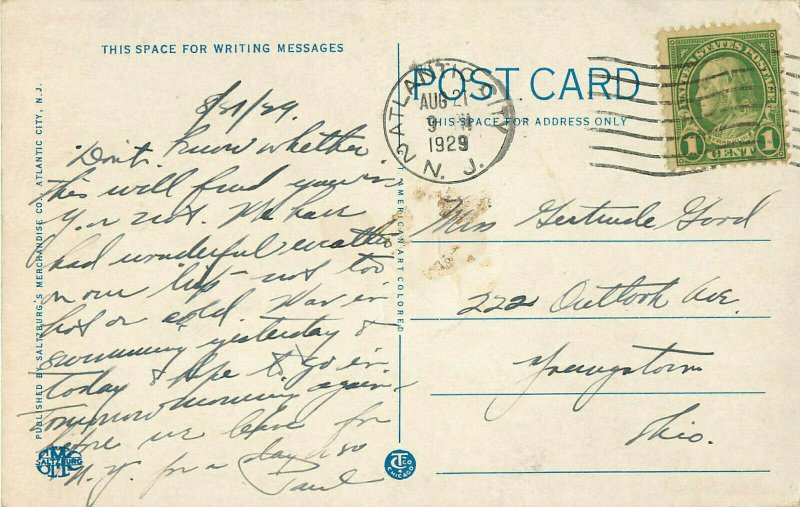 THIS SPACE FOR WRITING MESSAGES
8/21/29
Don't know whether
this will find you in
Y. or not. We have
had wonderful weather
on our trip - not too
hot or cold. Was in
swimming yesterday &
today & hope to go in
tomorrow morning again
before we leave for
N.Y. for a day or so
Paul
PUBLISHED BY SALTZBURG'S MERCHANDISE CO., ATLANTIC CITY, N.J.
SALTZBURG
C.T. AMERICAN ART COLORED
CHICAGO
POST CARD
THIS SPACE FOR ADDRESS ONLY
ATLANTIC CITY 2
AUG 21
9
1929
N. J.
UNITED STATES POSTAGE
1 CENT 1
Miss Gertrude Good
222 Outlook Ave.
Youngstown
Ohio.